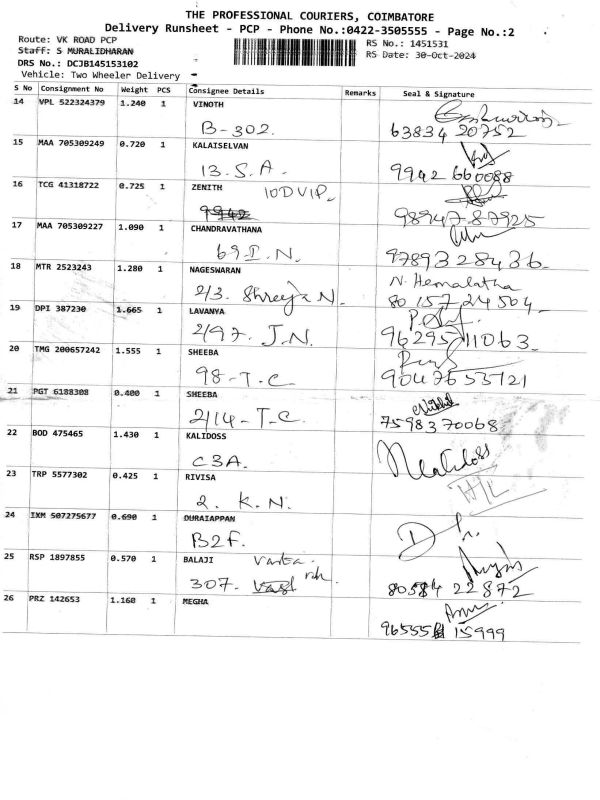 THE PROFESSIONAL COURIERS, COIMBATORE
Delivery Runsheet - PCP - Phone No.:0422-3505555 - Page No.:2
Route: VK ROAD PCP
RS No.: 1451531
Staff: S MURALIDHARAN
RS Date: 30-Oct-2024
DRS No.: DCJB145153102
Vehicle: Two Wheeler Delivery
S No Consignment No Weight PCS Consignee Details Remarks Seal & Signature
14 VPL 522324379 1.240 1 VINOTH
B-302. 63834 20752
15 MAA 705309249 0.720 1 KALAISELVAN
13. S. A. 9942 660088
16 TCG 41318722 0.725 1 ZENITH 10DVIP
9942 98947 87925
17 MAA 705309227 1.090 1 CHANDRAVATHANA
69. I. N. 9789328436
18 MTR 2523243 1.280 1 NAGESWARAN N. Hemalatha
2/3. Shreeja N. 80157 24504
19 DPI 387230 1.665 1 LAVANYA
2/97. J.N. 96295 11063
20 TMG 200657242 1.555 1 SHEEBA
98-T.C 9047653121
21 PGT 6188308 0.400 1 SHEEBA
2/14-T.C. 7598370068
22 BOD 475465 1.430 1 KALIDOSS
C3A. Kalidoss
23 TRP 5577302 0.425 1 RIVISA
2. K. N.
24 IXM 507275677 0.690 1 DURAIAPPAN
B2F.
25 RSP 1897855 0.570 1 BALAJI
307. 80584 22872
26 PRZ 142653 1.160 1 MEGHA
96555 15999